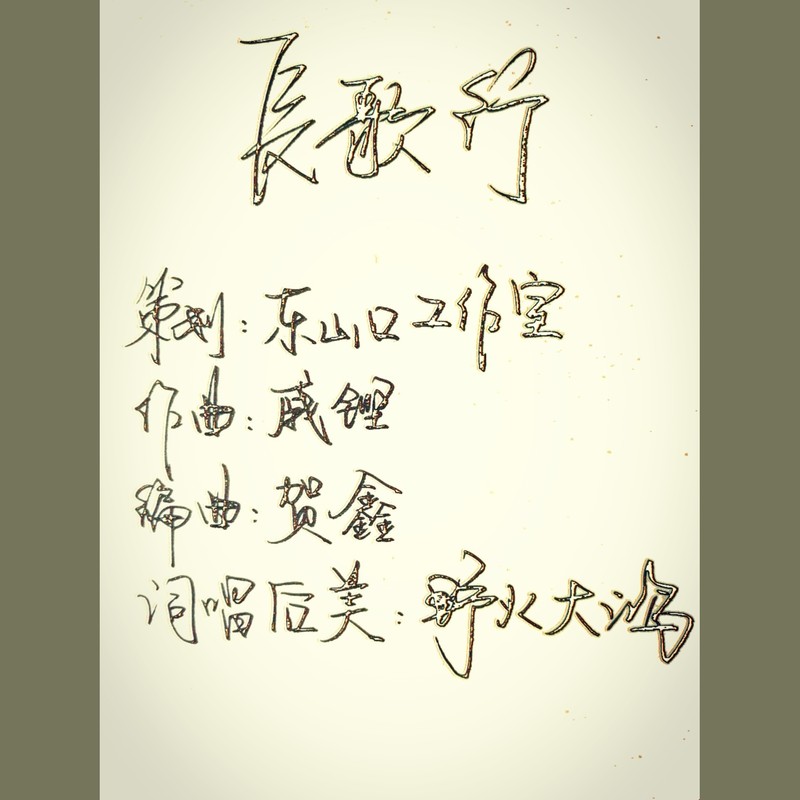 長歌行
策划:东山口工作室
作曲:戚铿
编曲:贺鑫
词唱后美:野火大鸿